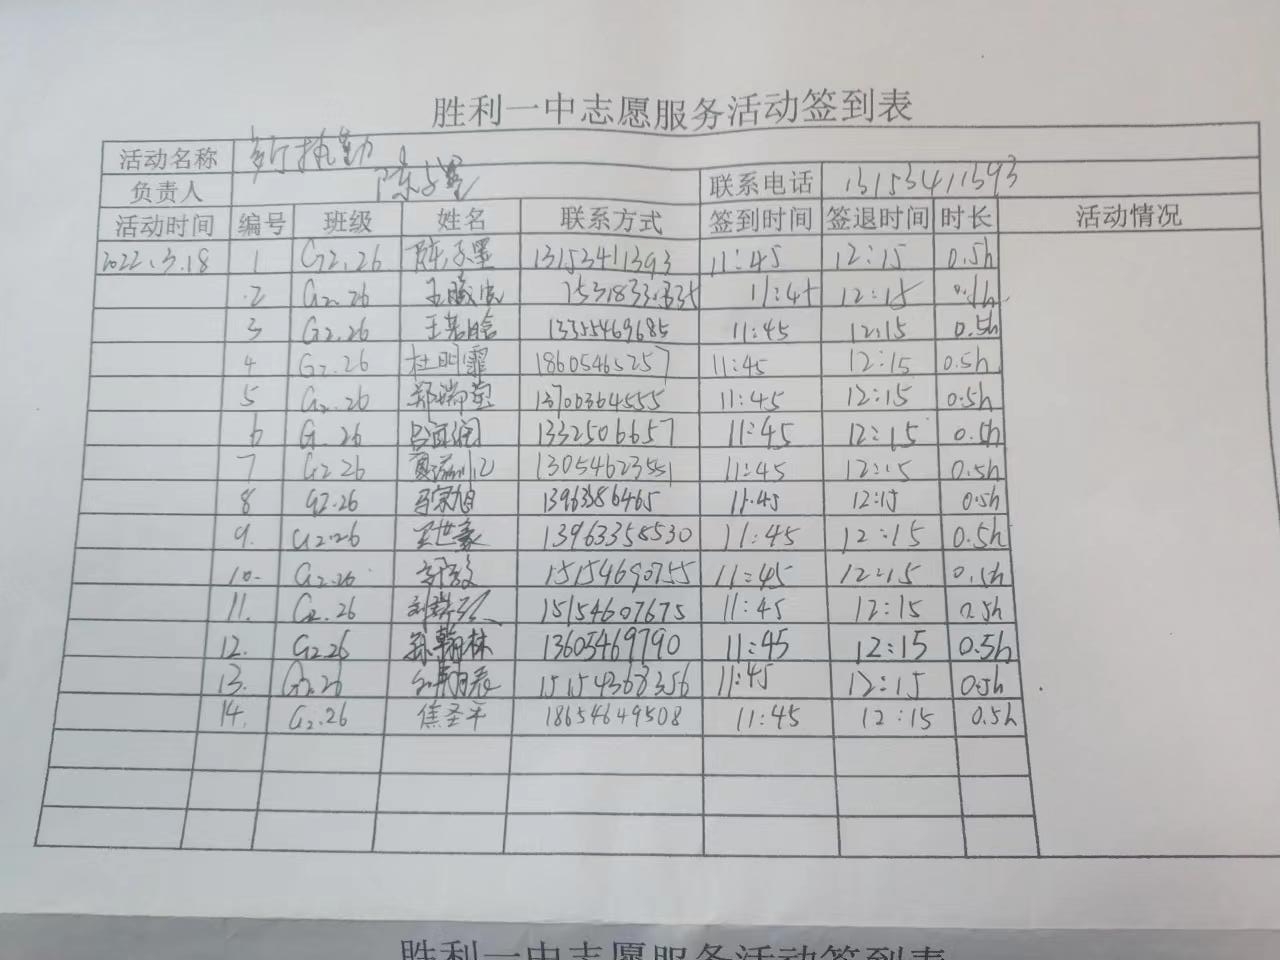 胜利一中志愿服务活动签到表
活动名称 执勤
负责人 陈子墨 联系电话 13153411393
活动时间 编号 班级 姓名 联系方式 签到时间 签退时间 时长 活动情况
2022.3.18 1 G2.26 陈子墨 13153411393 11:45 12:15 0.5h
2 G2.26 11:45 12:15 0.5h
3 G2.26 王若晗 13355469685 11:45 12:15 0.5h
4 G2.26 杜明霏 18605465257 11:45 12:15 0.5h
5 G2.26 郑瑞莹 13700364555 11:45 12:15 0.5h
6 G 26 1332506657 11:45 12:15 0.5h
7 G2 26 13054623551 11:45 12:15 0.5h
8 G2.26 马宗旭 1396386465 11:45 12:15 0.5h
9. G2.26 王世豪 13963358530 11:45 12:15 0.5h
10. G2.26 15154690755 11:45 12:15 0.5h
11. G2.26 15154607675 11:45 12:15 0.5h
12. G2.26 孙翰林 13605469790 11:45 12:15 0.5h
13. G2.26 15154368356 11:45 12:15 0.5h
14. G2.26 焦圣平 18654649508 11:45 12:15 0.5h
胜利一中志愿服务活动签到表